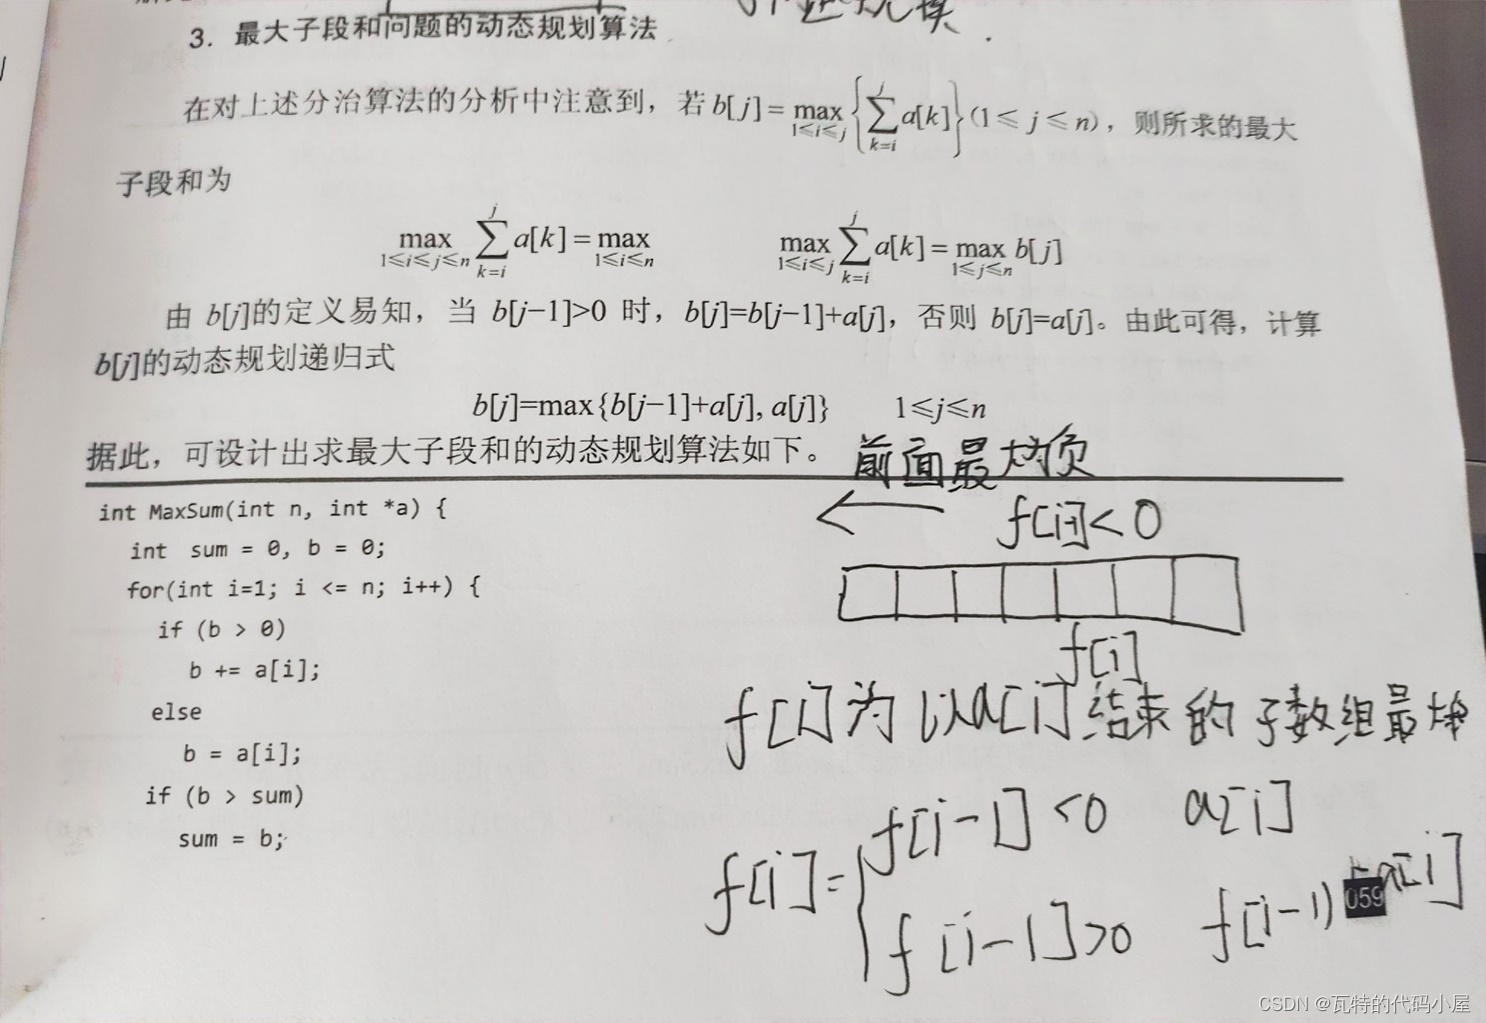 3. 最大子段和问题的动态规划算法
在对上述分治算法的分析中注意到，若 b[j]=max{∑a[k]}(1≤j≤n)，则所求的最大
1≤i≤j k=i j
子段和为
max ∑ a[k]=max max ∑ a[k]=max b[j]
1≤i≤j≤n k=i j 1≤i≤n 1≤i≤j k=i j 1≤j≤n
由 b[j]的定义易知，当 b[j−1]>0 时，b[j]=b[j−1]+a[j]，否则 b[j]=a[j]。由此可得，计算
b[j]的动态规划递归式
b[j]=max{b[j−1]+a[j], a[j]} 1≤j≤n
据此，可设计出求最大子段和的动态规划算法如下。
前面最大为负
int MaxSum(int n, int *a) {
int sum = 0, b = 0;
for(int i=1; i <= n; i++) {
if (b > 0)
b += a[i];
else
b = a[i];
if (b > sum)
sum = b;
<0
f[i]
f[i]为以a[i]结束的子数组最大
f[i]=
f[i-1]<0 a[i]
f[i-1]>0 f[i-1) a[i]
059
CSDN @瓦特的代码小屋